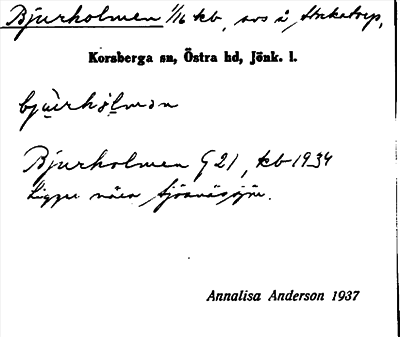 Bjurholmen 1/16 kb, sos i
Korsberga sn, Östra hd, Jönk. l.
bjuerhólmən
Bjurholmen G 21, kb 1934
Ligger nära
Annalisa Anderson 1937